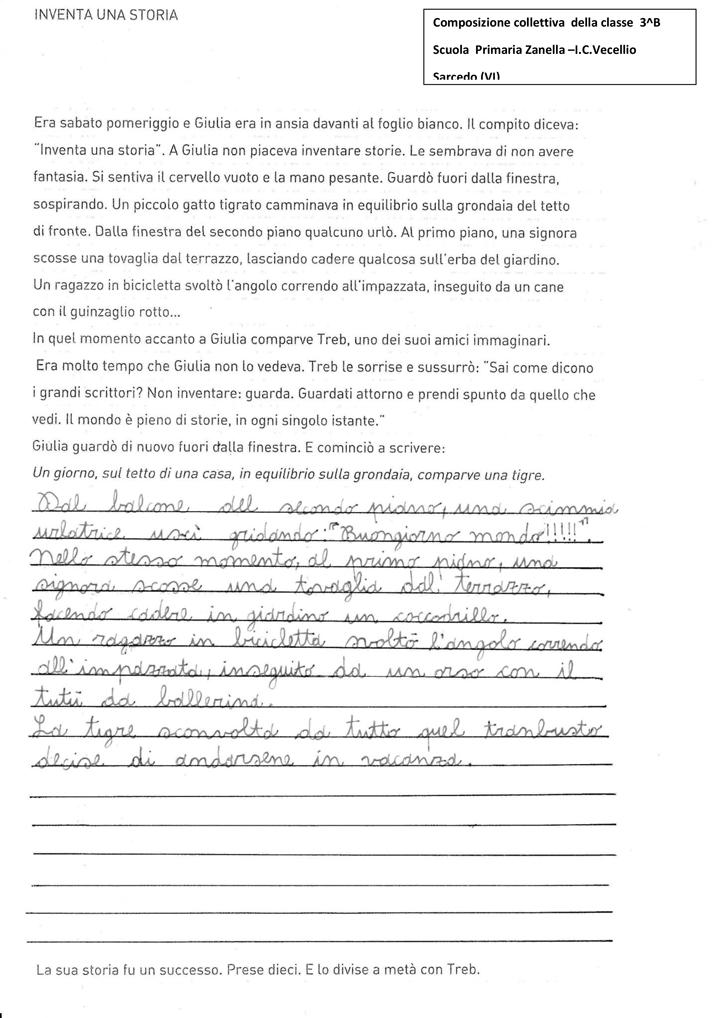 INVENTA UNA STORIA
Composizione collettiva della classe 3^B
Scuola Primaria Zanella –I.C.Vecellio
Sarcedo (VI)
Era sabato pomeriggio e Giulia era in ansia davanti al foglio bianco. Il compito diceva:
“Inventa una storia”. A Giulia non piaceva inventare storie. Le sembrava di non avere
fantasia. Si sentiva il cervello vuoto e la mano pesante. Guardò fuori dalla finestra,
sospirando. Un piccolo gatto tigrato camminava in equilibrio sulla grondaia del tetto
di fronte. Dalla finestra del secondo piano qualcuno urlò. Al primo piano, una signora
scosse una tovaglia dal terrazzo, lasciando cadere qualcosa sull'erba del giardino.
Un ragazzo in bicicletta svoltò l'angolo correndo all'impazzata, inseguito da un cane
con il guinzaglio rotto...
In quel momento accanto a Giulia comparve Treb, uno dei suoi amici immaginari.
Era molto tempo che Giulia non lo vedeva. Treb le sorrise e sussurrò: “Sai come dicono
i grandi scrittori? Non inventare: guarda. Guardati attorno e prendi spunto da quello che
vedi. Il mondo è pieno di storie, in ogni singolo istante.”
Giulia guardò di nuovo fuori dalla finestra. E cominciò a scrivere:
Un giorno, sul tetto di una casa, in equilibrio sulla grondaia, comparve una tigre.
Dal balcone del secondo piano, una scimmia
urlatrice uscì gridando: "Buongiorno mondo!!!!!".
Nello stesso momento, al primo piano, una
signora scosse una tovaglia dal' terrazzo,
facendo cadere in giardino un coccodrillo.
Un ragazzo in bicicletta svoltò l'angolo correndo
all'impazzata, inseguito da un orso con il
tutù da ballerina.
La tigre sconvolta da tutto quel tranbusto
decise di andarsene in vacanza.
La sua storia fu un successo. Prese dieci. E lo divise a metà con Treb.